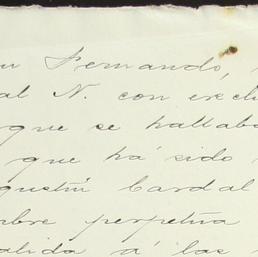 Fernando,
al N. con exclu
que se hallaba
que há sido
gustín Cardal
bre perpetua
alida á las